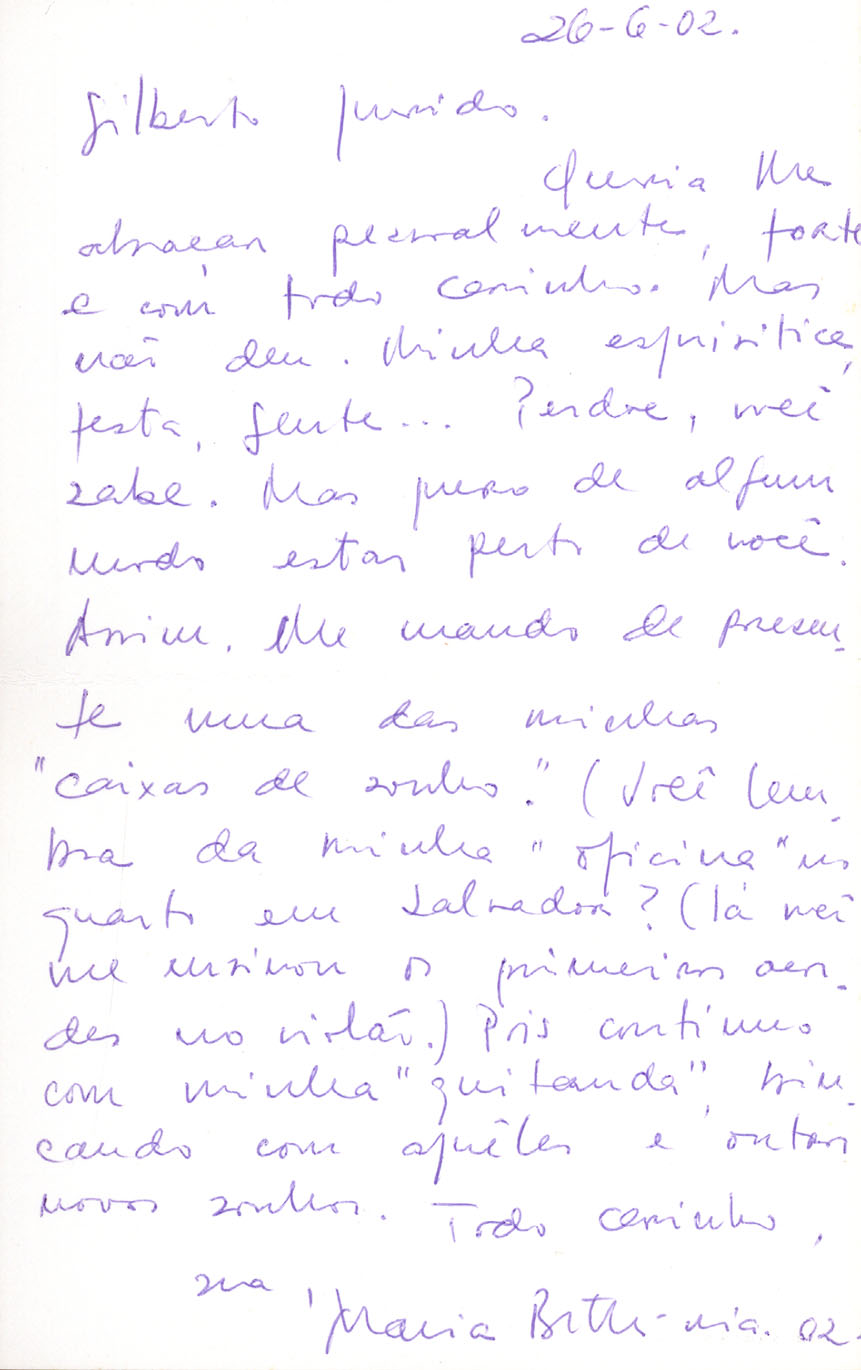 26-6-02.
Gilberto querido.
Queria lhe
abraçar pessoalmente, forte
e com todo carinho. Mas
não deu. Minha esquisitice,
festa, gente... Perdoe, você
sabe. Mas quero de algum
modo estar perto de você.
Assim, lhe mando de presen-
te uma das minhas
"caixas de sonho." (Você lem-
bra da minha "oficina" no
quarto em Salvador? (lá você
me ensinou os primeiros acor-
des no violão.) Pois continuo
com minha "quitanda", brin-
cando com aquêles e outros
novos sonhos. Todo carinho,
sua,
Maria Bethânia. 02.